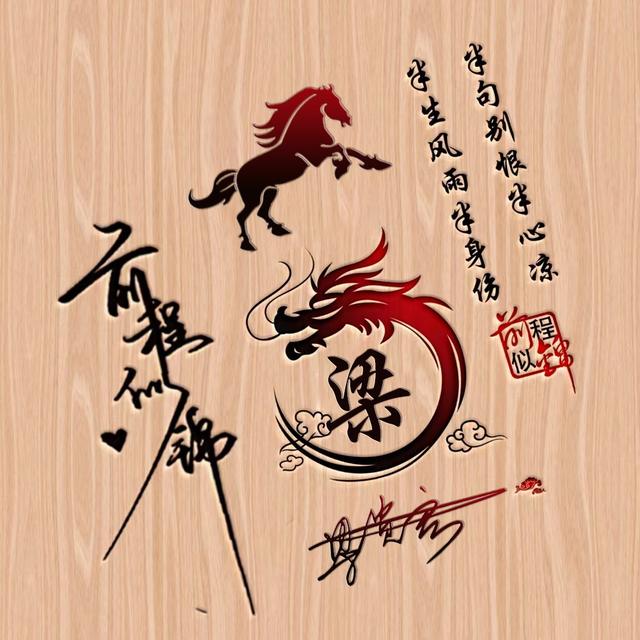 半句别恨半心凉
半生风雨半身伤
前程似锦
前程似锦
梁